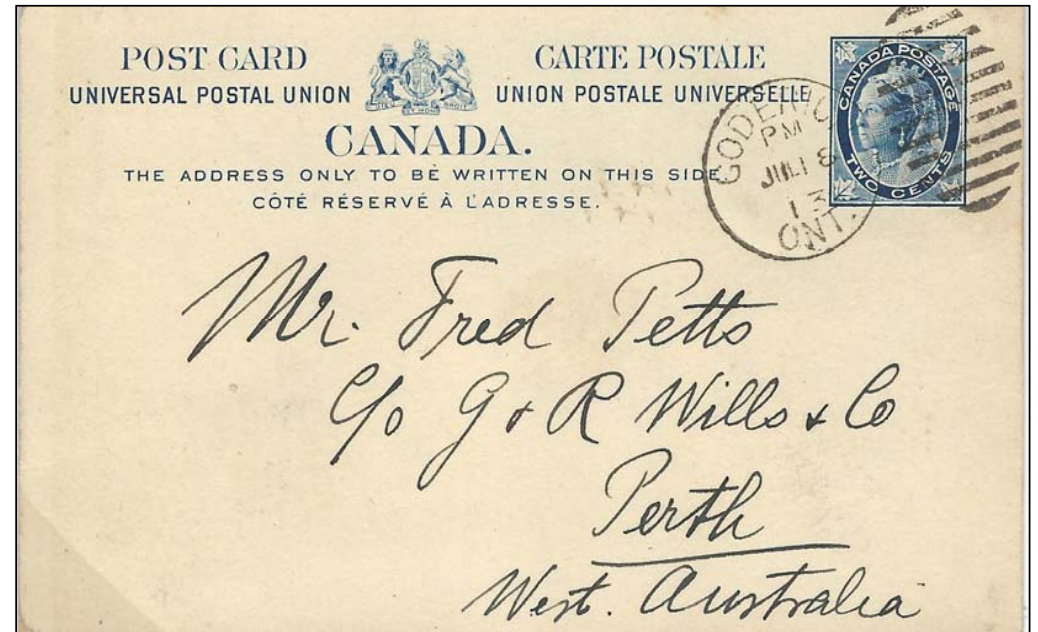 POST CARD CARTE POSTALE
UNIVERSAL POSTAL UNION UNION POSTALE UNIVERSELLE
CANADA.
THE ADDRESS ONLY TO BE WRITTEN ON THIS SIDE.
CÔTÉ RÉSERVÉ À L'ADRESSE.
CANADA POSTAGE
TWO CENTS
PM
ONT.
Mr. Fred Petts
C/o G & R Wills & Co
Perth
West. Australia